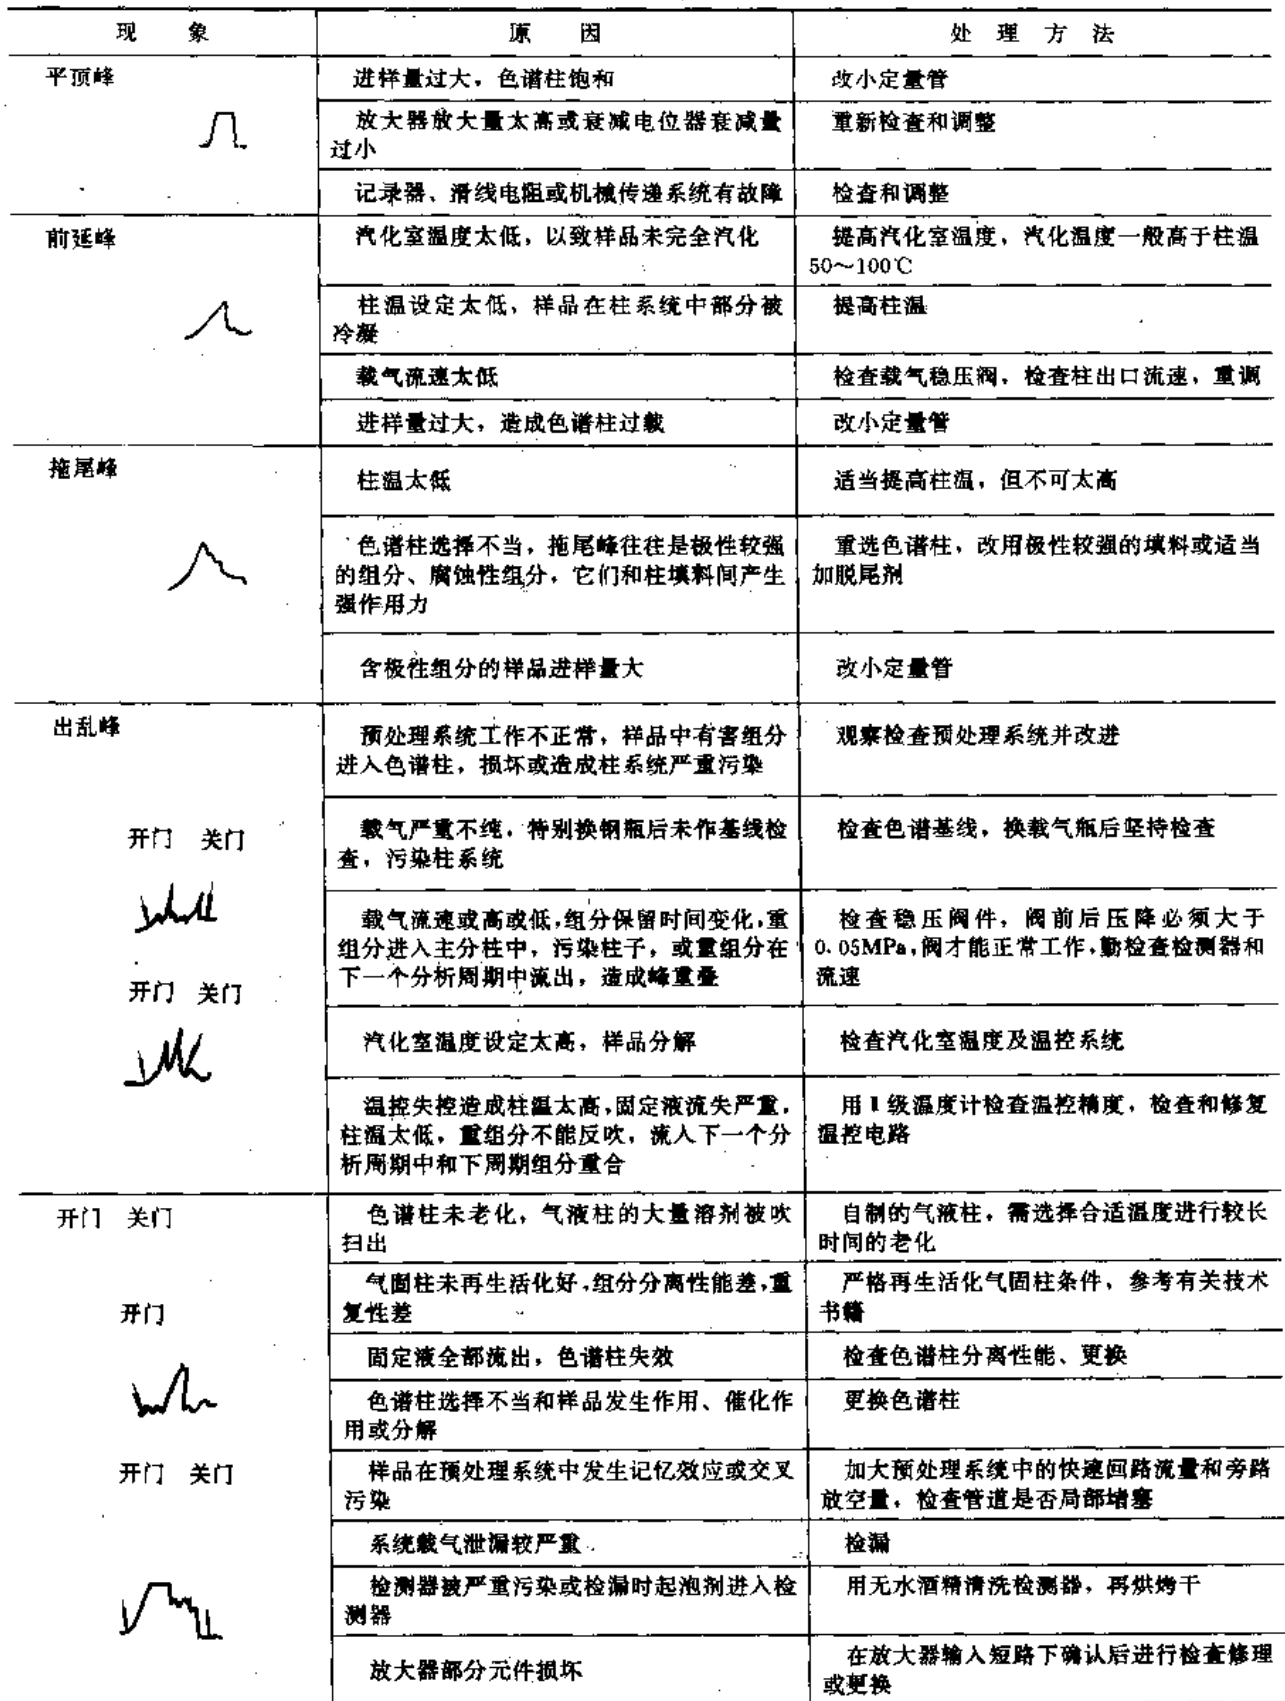 现 象 原 因 处 理 方 法
平顶峰
进样量过大，色谱柱饱和
改小定量管
放大器放大量太高或衰减电位器衰减量
过小
重新检查和调整
记录器、滑线电阻或机械传递系统有故障
检查和调整
前延峰
汽化室温度太低，以致样品未完全汽化
提高汽化室温度，汽化温度一般高于柱温
50～100℃
柱温设定太低，样品在柱系统中部分被
冷凝
提高柱温
载气流速太低
检查载气稳压阀，检查柱出口流速，重调
进样量过大，造成色谱柱过载
改小定量管
拖尾峰
柱温太低
适当提高柱温，但不可太高
色谱柱选择不当，拖尾峰往往是极性较强
的组分、腐蚀性组分，它们和柱填料间产生
强作用力
重选色谱柱，改用极性较强的填料或适当
加脱尾剂
含极性组分的样品进样量大
改小定量管
出乱峰
预处理系统工作不正常，样品中有害组分
进入色谱柱，损坏或造成柱系统严重污染
观察检查预处理系统并改进
开门 关门
载气严重不纯，特别换钢瓶后未作基线检
查，污染柱系统
检查色谱基线，换载气瓶后坚持检查
载气流速或高或低，组分保留时间变化，重
组分进入主分柱中，污染柱子，或重组分在
下一个分析周期中流出，造成峰重叠
检查稳压阀件，阀前后压降必须大于
0.05MPa，阀才能正常工作，勤检查检测器和
流速
开门 关门
汽化室温度设定太高，样品分解
检查汽化室温度及温控系统
温控失控造成柱温太高，固定液流失严重，
柱温太低，重组分不能反吹，流入下一个分
析周期中和下周期组分重合
用Ⅰ级温度计检查温控精度，检查和修复
温控电路
开门 关门
色谱柱未老化，气液柱的大量溶剂被吹
扫出
自制的气液柱，需选择合适温度进行较长
时间的老化
开门
气固柱未再生活化好，组分分离性能差，重
复性差
严格再生活化气固柱条件，参考有关技术
书籍
固定液全部流出，色谱柱失效
检查色谱柱分离性能、更换
色谱柱选择不当和样品发生作用、催化作
用或分解
更换色谱柱
开门 关门
样品在预处理系统中发生记忆效应或交叉
污染
加大预处理系统中的快速回路流量和旁路
放空量，检查管道是否局部堵塞
系统载气泄漏较严重
检漏
检测器被严重污染或检漏时起泡剂进入检
测器
用无水酒精清洗检测器，再烘烤干
放大器部分元件损坏
在放大器输入短路下确认后进行检查修理
或更换